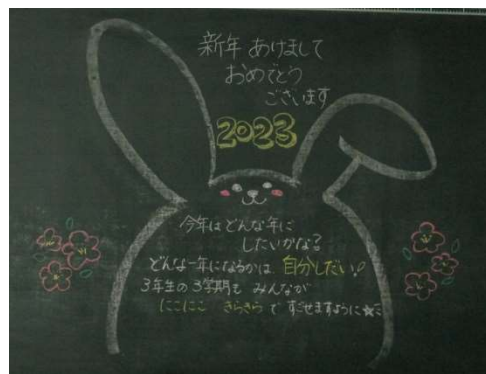 新年 あけまして
おめでとう
ございます
2023
今年はどんな年に
したいかな?
どんな一年になるかは 自分しだい!
3年生の3学期も みんなが
にこにこ きらきらで すごせますように☆ミ